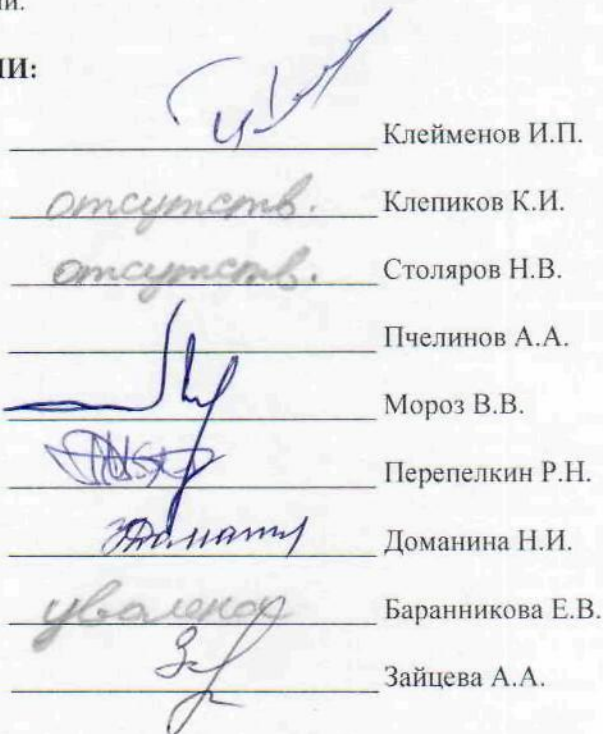 ии.
ІИ:
Клейменов И.П.
отсутств. Клепиков К.И.
отсутств. Столяров Н.В.
Пчелинов А.А.
Мороз В.В.
Перепелкин Р.Н.
Доманина Н.И.
уволена Баранникова Е.В.
Зайцева А.А.